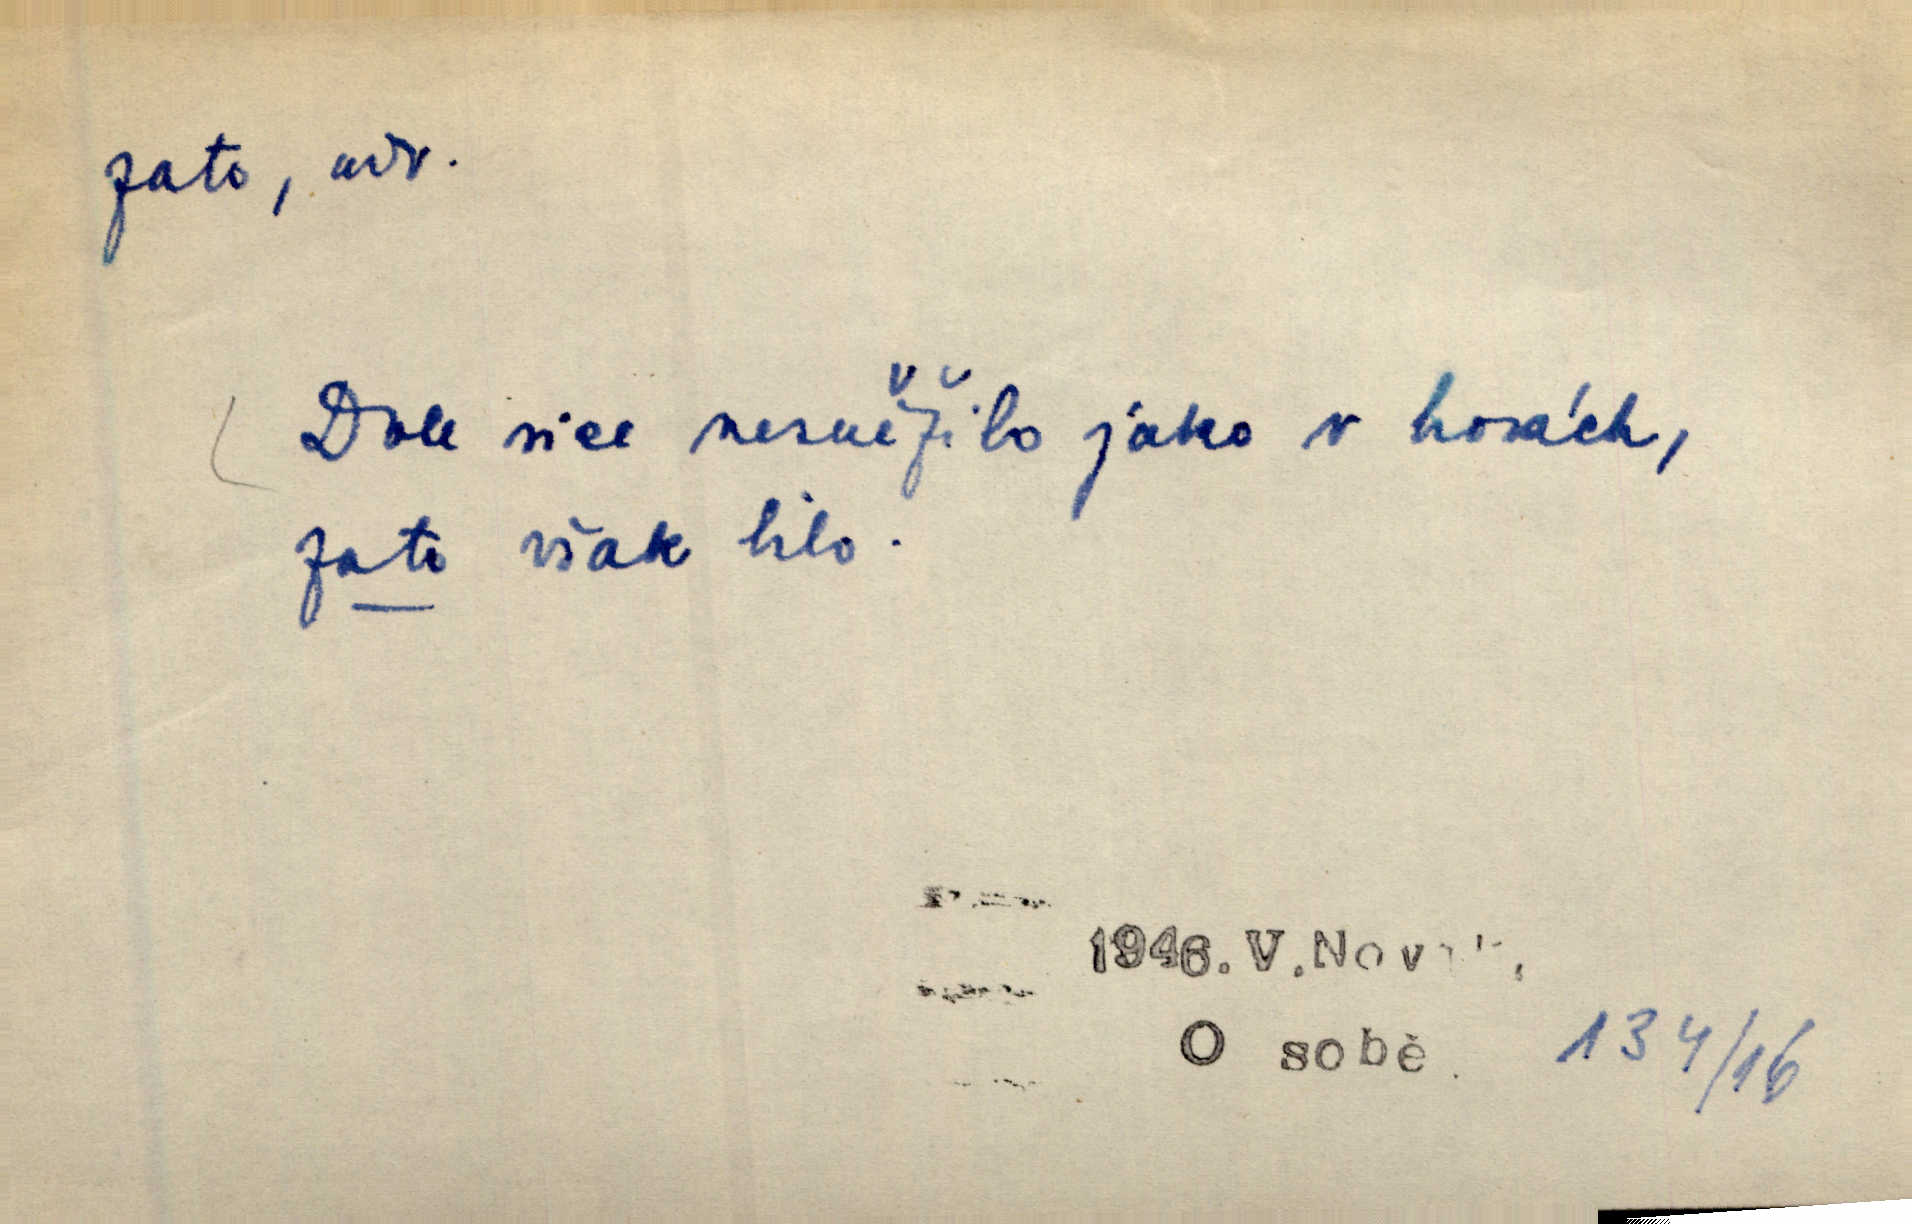 zato, adv.
Dole sice nesněžilo jako v horách,
zato však lilo.
1946. V. Novák,
O sobě.
134/16